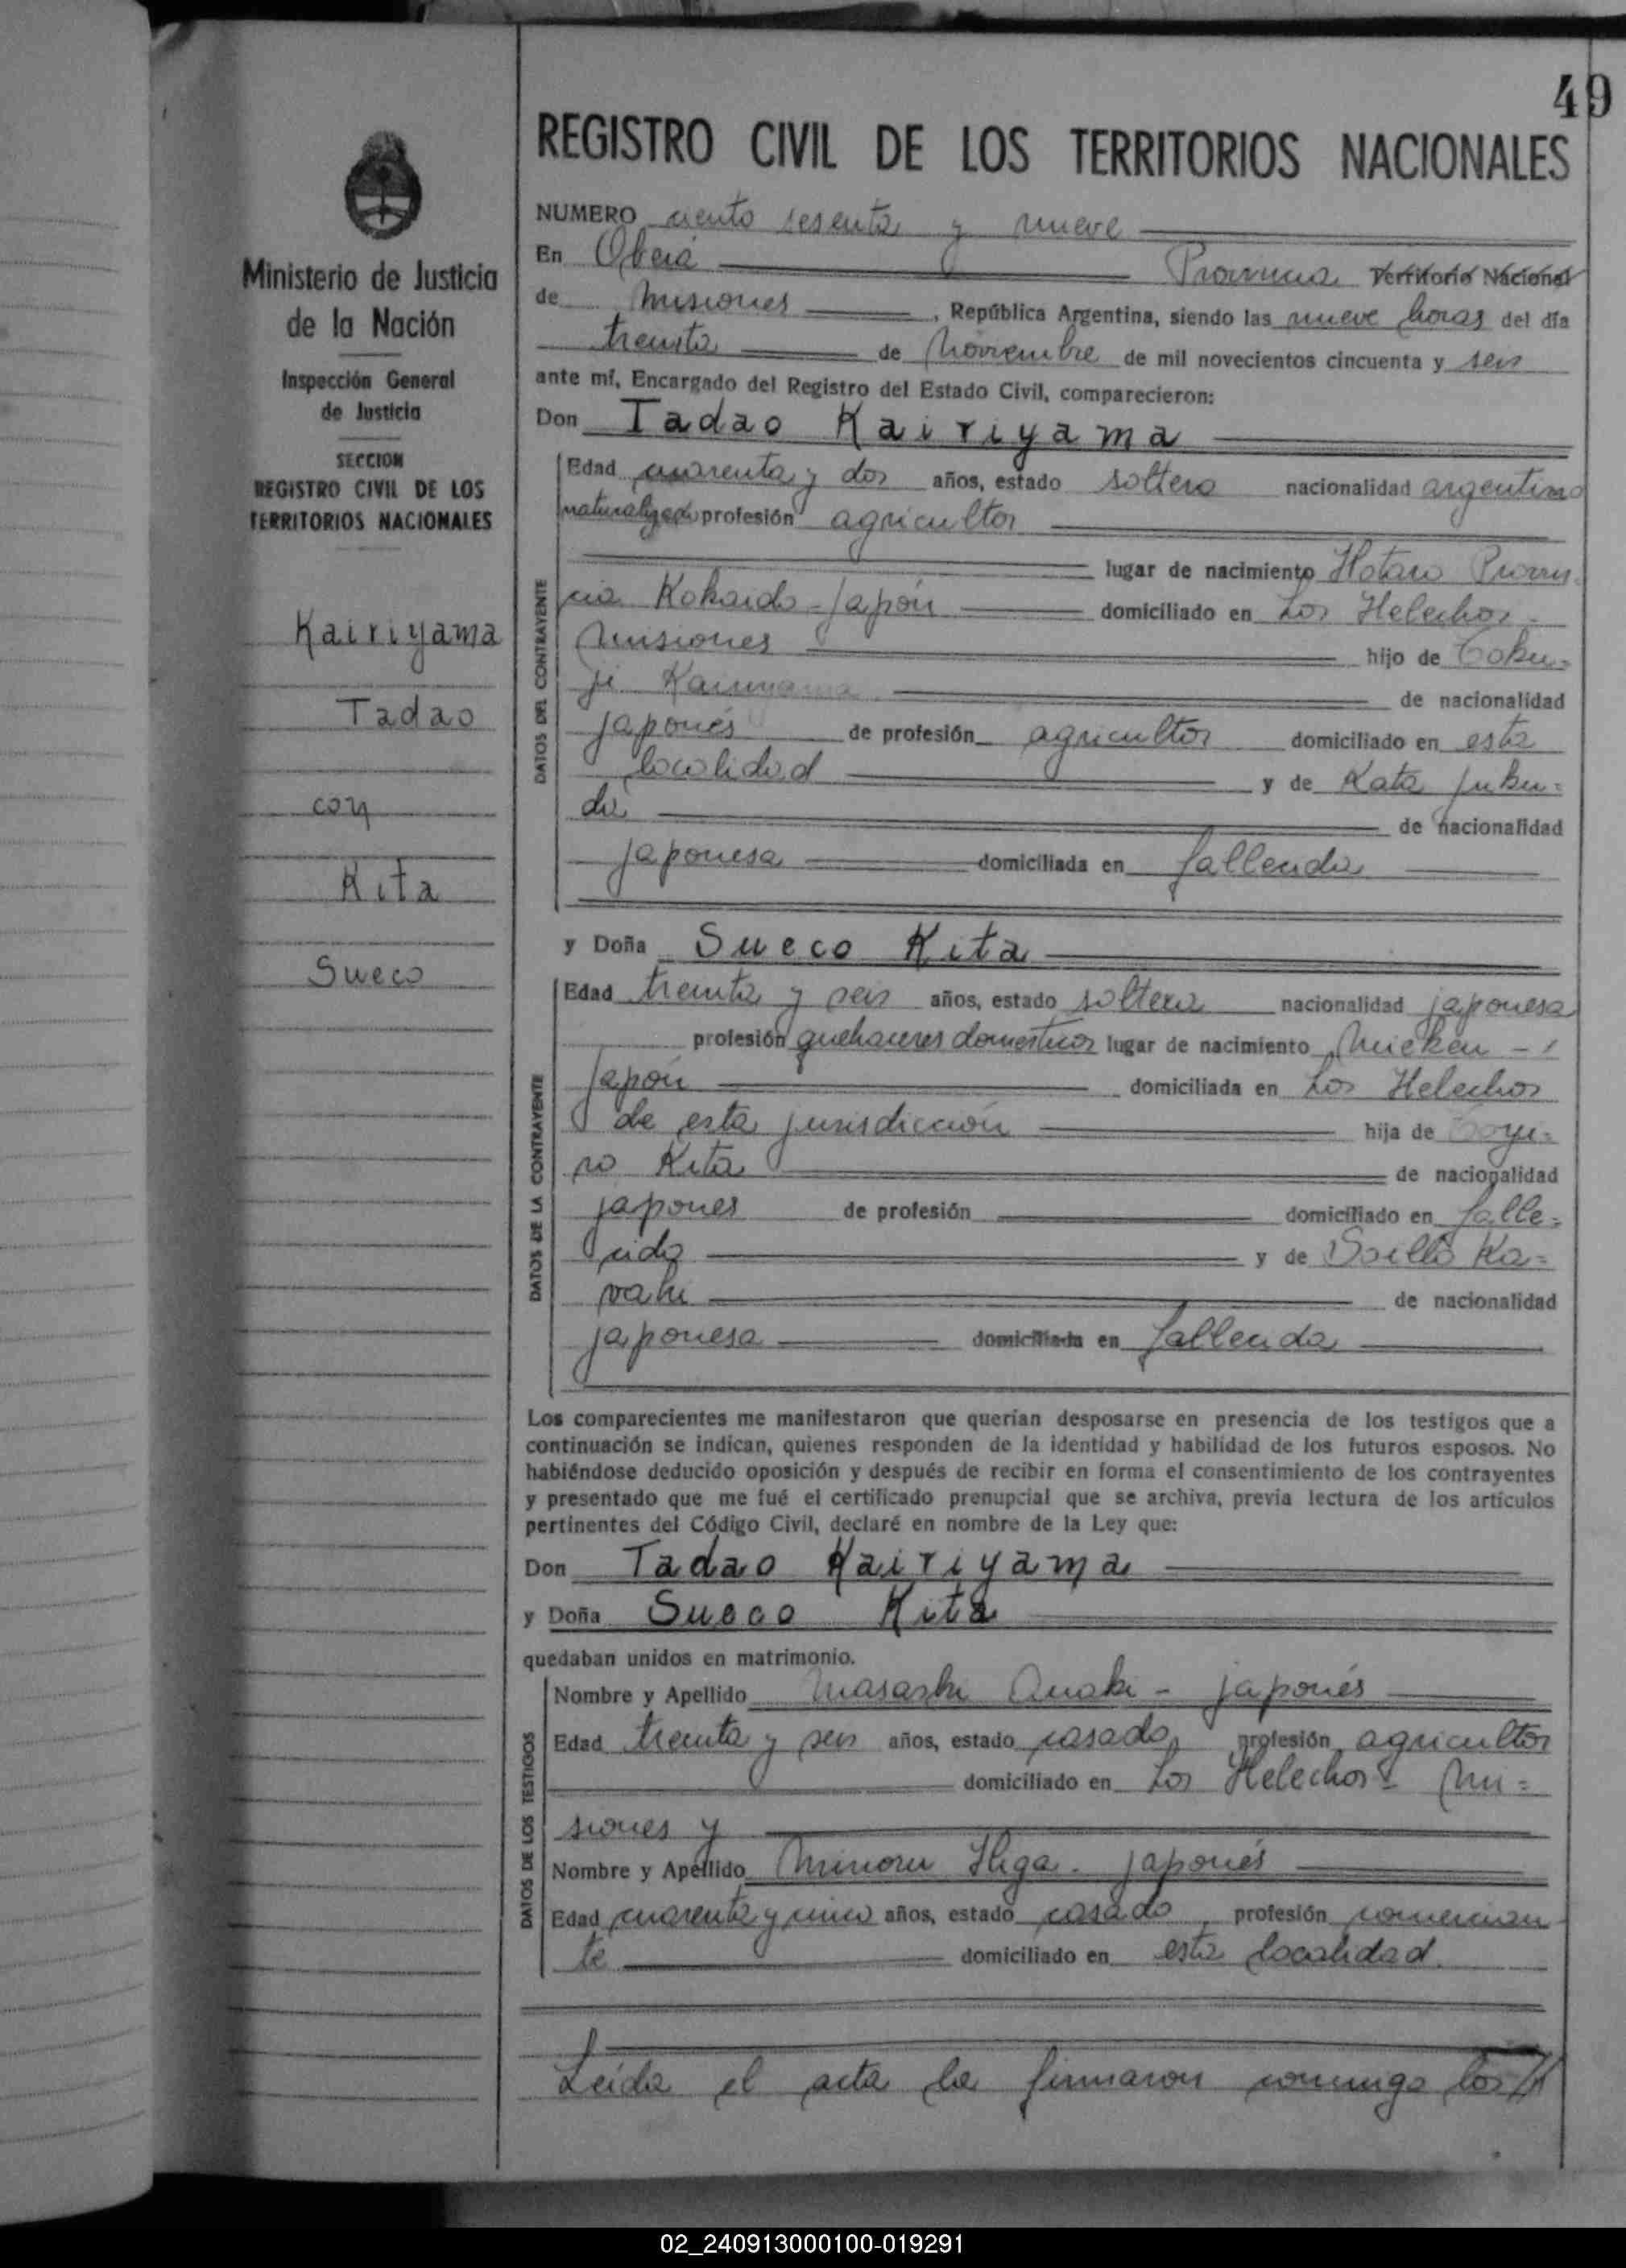 49
REGISTRO CIVIL DE LOS TERRITORIOS NACIONALES
Ministerio de Justicia
de la Nación
Inspección General
de Justicia
SECCION
REGISTRO CIVIL DE LOS
TERRITORIOS NACIONALES
Kairiyama
Tadao
con
Kita
Sueco
NUMERO ciento sesenta y nueve
En Oberá Provincia Territorio Nacional
de Misiones, República Argentina, siendo las nueve horas del día
treinta de Noviembre de mil novecientos cincuenta y seis
ante mí, Encargado del Registro del Estado Civil, comparecieron:
Don Tadao Kairiyama
DATOS DEL CONTRAYENTE
Edad cuarenta y dos años, estado soltero nacionalidad argentino
naturalizado profesión agricultor
lugar de nacimiento Hotaro Provin-
cia Kokaido - Japón domiciliado en Los Helechos -
Misiones hijo de Toku=
ji Kairiyama de nacionalidad
japonés de profesión agricultor domiciliado en esta
localidad y de Kata Juku=
da de nacionalidad
japonesa domiciliada en fallecida
y Doña Sueco Kita
DATOS DE LA CONTRAYENTE
Edad treinta y seis años, estado soltera nacionalidad japonesa
profesión quehaceres domesticos lugar de nacimiento Mieken -
Japón domiciliada en Los Helechos
de esta jurisdicción hija de
ro Kita de nacionalidad
japones de profesión domiciliado en falle=
cido y de Ka=
vahi de nacionalidad
japonesa domiciliada en fallecida
Los comparecientes me manifestaron que querían desposarse en presencia de los testigos que a
continuación se indican, quienes responden de la identidad y habilidad de los futuros esposos. No
habiéndose deducido oposición y después de recibir en forma el consentimiento de los contrayentes
y presentado que me fué el certificado prenupcial que se archiva, previa lectura de los artículos
pertinentes del Código Civil, declaré en nombre de la Ley que:
Don Tadao Kairiyama
y Doña Sueco Kita
quedaban unidos en matrimonio.
DATOS DE LOS TESTIGOS
Nombre y Apellido Masashi - japonés
Edad treinta y seis años, estado casado, profesión agricultor
domiciliado en Los Helechos - Mi=
siones y
Nombre y Apellido Minoru Higa - japonés
Edad cuarenta y cinco años, estado casado, profesión comercian
te domiciliado en esta localidad.
Leída el acta la firmaron conmigo los //
02_240913000100-019291